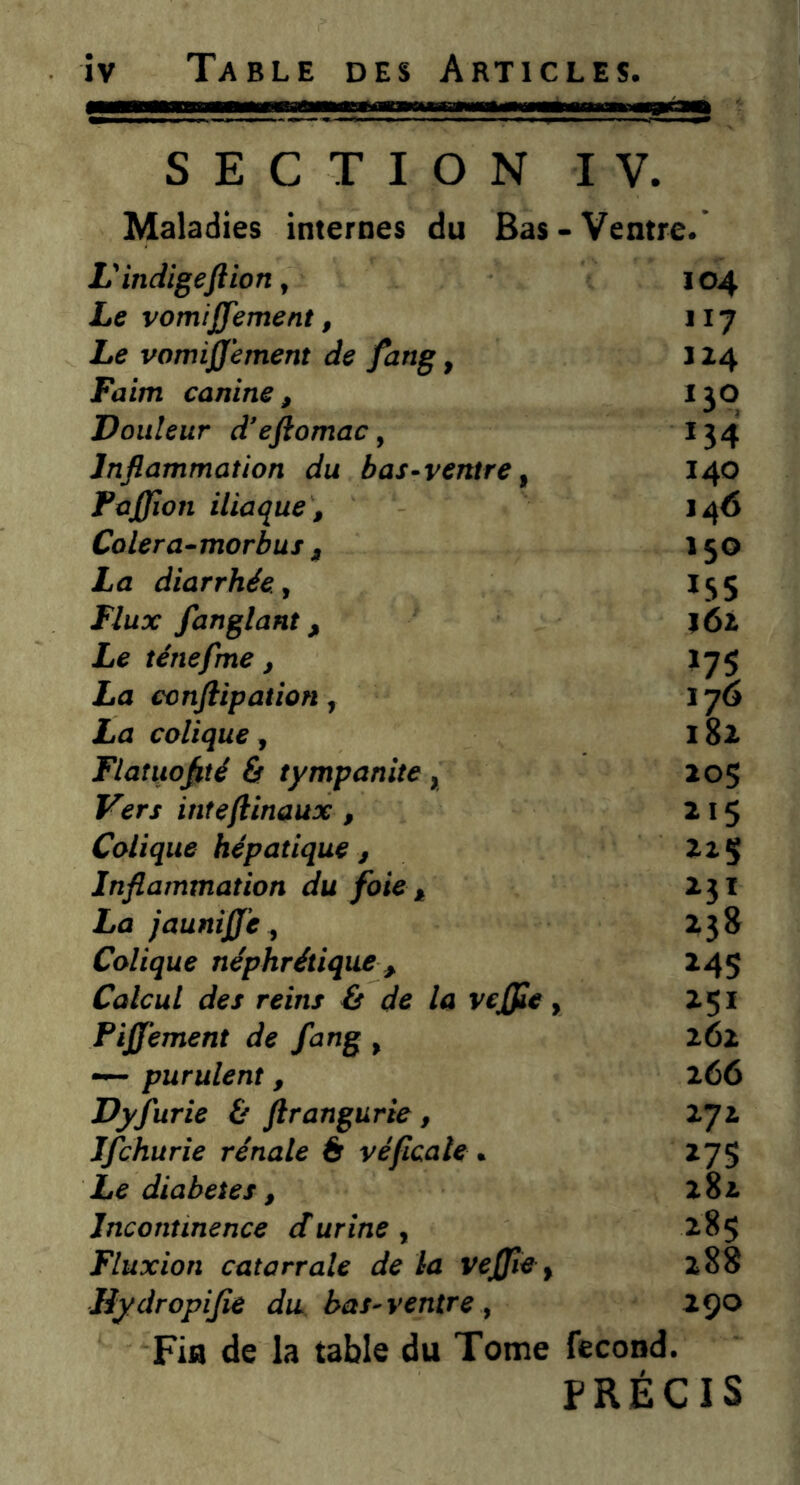 iv TABLE DES ARTICLES.
SECTION IV.
Maladies internes du Bas-Ventre.
L'indigeſtion, 104
Le vomiſſement, 117
Le vomiſſement de ſang, 124
Faim canine, 130
Douleur d'eſtomac, 134
Inflammation du bas-ventre, 140
Paſſion iliaque, 146
Colera-morbus, 150
La diarrhée, 155
Flux ſanglant, 162
Le téneſme, 175
La conſtipation, 176
La colique, 182
Flatuoſité & tympanite, 205
Vers inteſtinaux, 215
Colique hépatique, 225
Inflammation du foie, 231
La jauniſſe, 238
Colique néphrétique, 245
Calcul des reins & de la veſſie, 251
Piſſement de ſang, 262
— purulent, 266
Dyſurie & ſtrangurie, 272
Iſchurie rénale & véſicale. 275
Le diabetes, 282
Incontinence d'urine, 285
Fluxion catarrale de la veſſie, 288
Hydropiſie du bas-ventre, 290
Fin de la table du Tome ſecond.
PRÉCIS